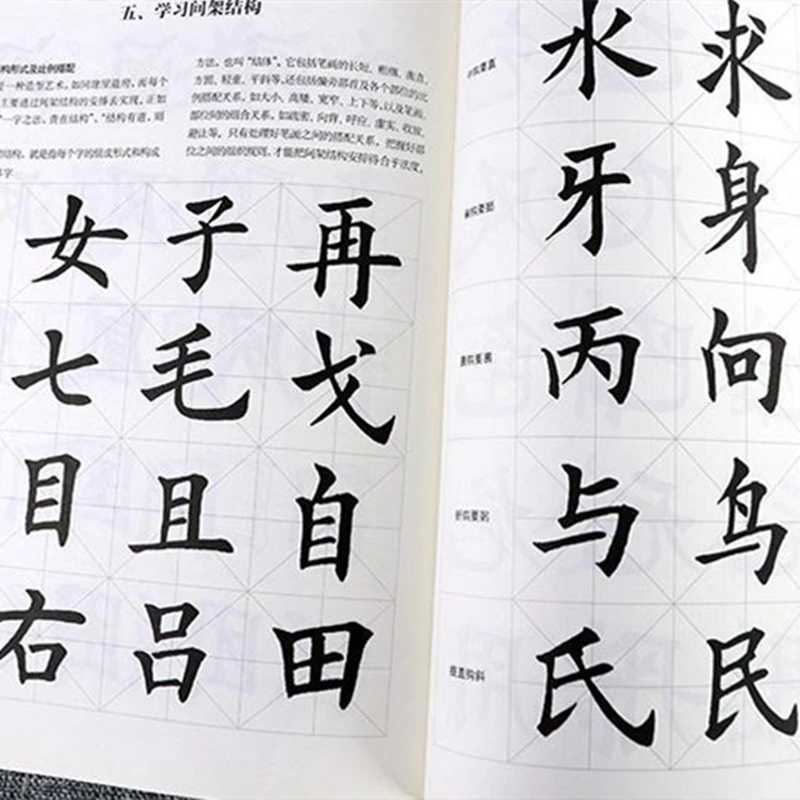 五、学习间架结构
构形式及比例搭配
是一种造型艺术，如同建屋造房，而每个
主要通过间架结构的安排去实现，正如
“一字之法，贵在结构”，“结构有道，则
结构，就是指每个字的组成形式和构成
方法，也叫“结体”，它包括笔画的长短、粗细、曲直、
方圆、轻重、平斜等，还包括偏旁部首及各个部位的比
例搭配关系，如大小、高矮、宽窄、上下等，以及笔画、
部位间的组合关系，如疏密、向背、呼应、虚实、收放、
避让等，只有处理好笔画之间的搭配关系，把握好部
位之间的组织规则，才能把间架结构安排得合乎法度，
女 子 再
七 毛 戈
目 且 自
右 吕 田
水 求
牙 身
丙 向
与 鸟
竖直钩斜
氏 民